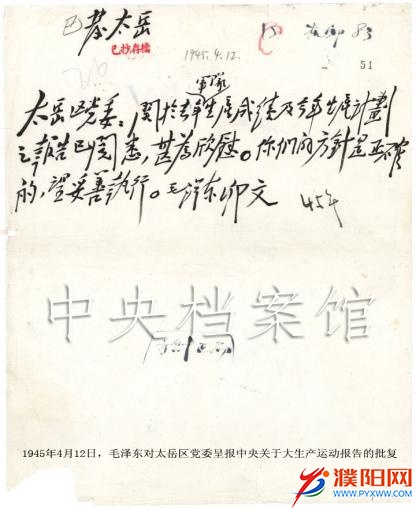 太岳
已抄存檔
1945.4.12.
51
軍隊
太岳区党委：關於去年生產成績及今年生產計劃
之報告已閱悉，甚為欣慰。你们的方針是正确
的，望妥善執行。毛泽东卯文
45年
中央档案馆
1945年4月12日，毛泽东对太岳区党委呈报中央关于大生产运动报告的批复
濮阳网
www.PYXWW.com